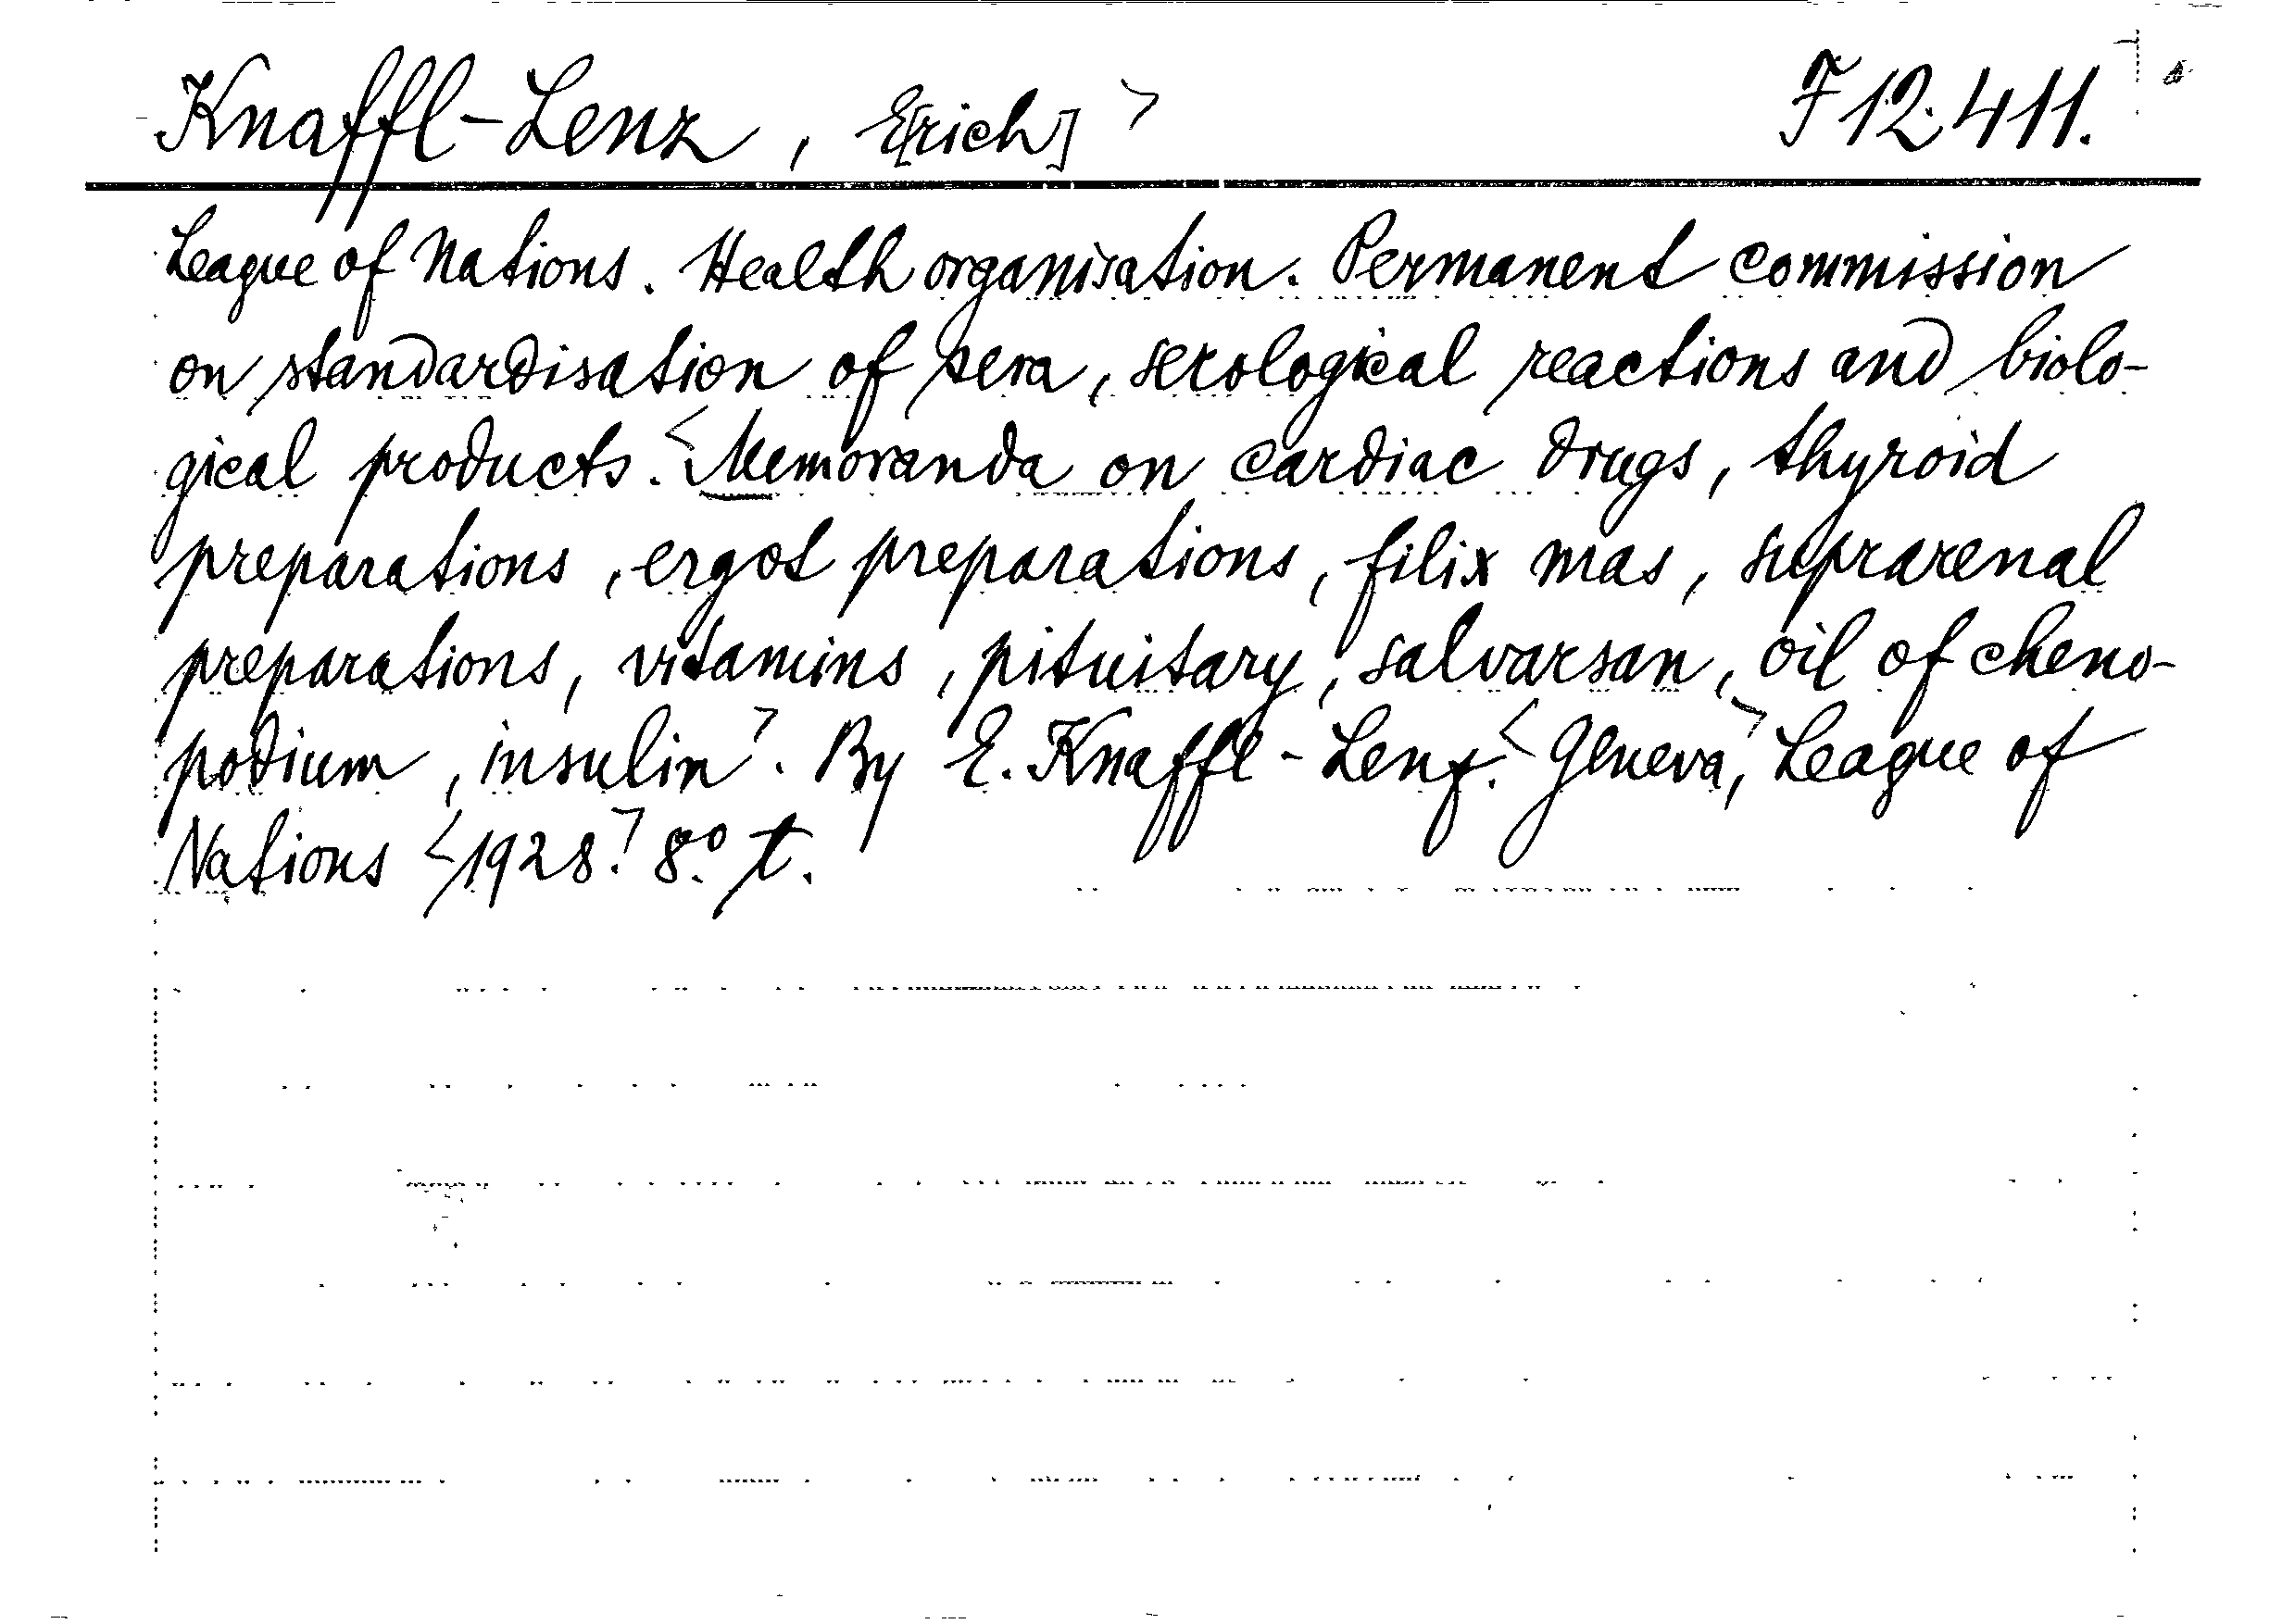 Knaffl-Lenz, E[rich] F 12.411.
League of Nations. Health organisation. Permanent commission
on standardisation of sera, serological reactions and biolo-
gical products. <Memoranda on cardiac drugs, thyroid
preparations, ergot preparations, filix mas, suprarenal
preparations, vitamins, pituitary, salvarsan, oil of cheno-
podium, insulin>. By E. Knaffl-Lenz. <Geneva>, League of
Nations <1928>. 8° t.